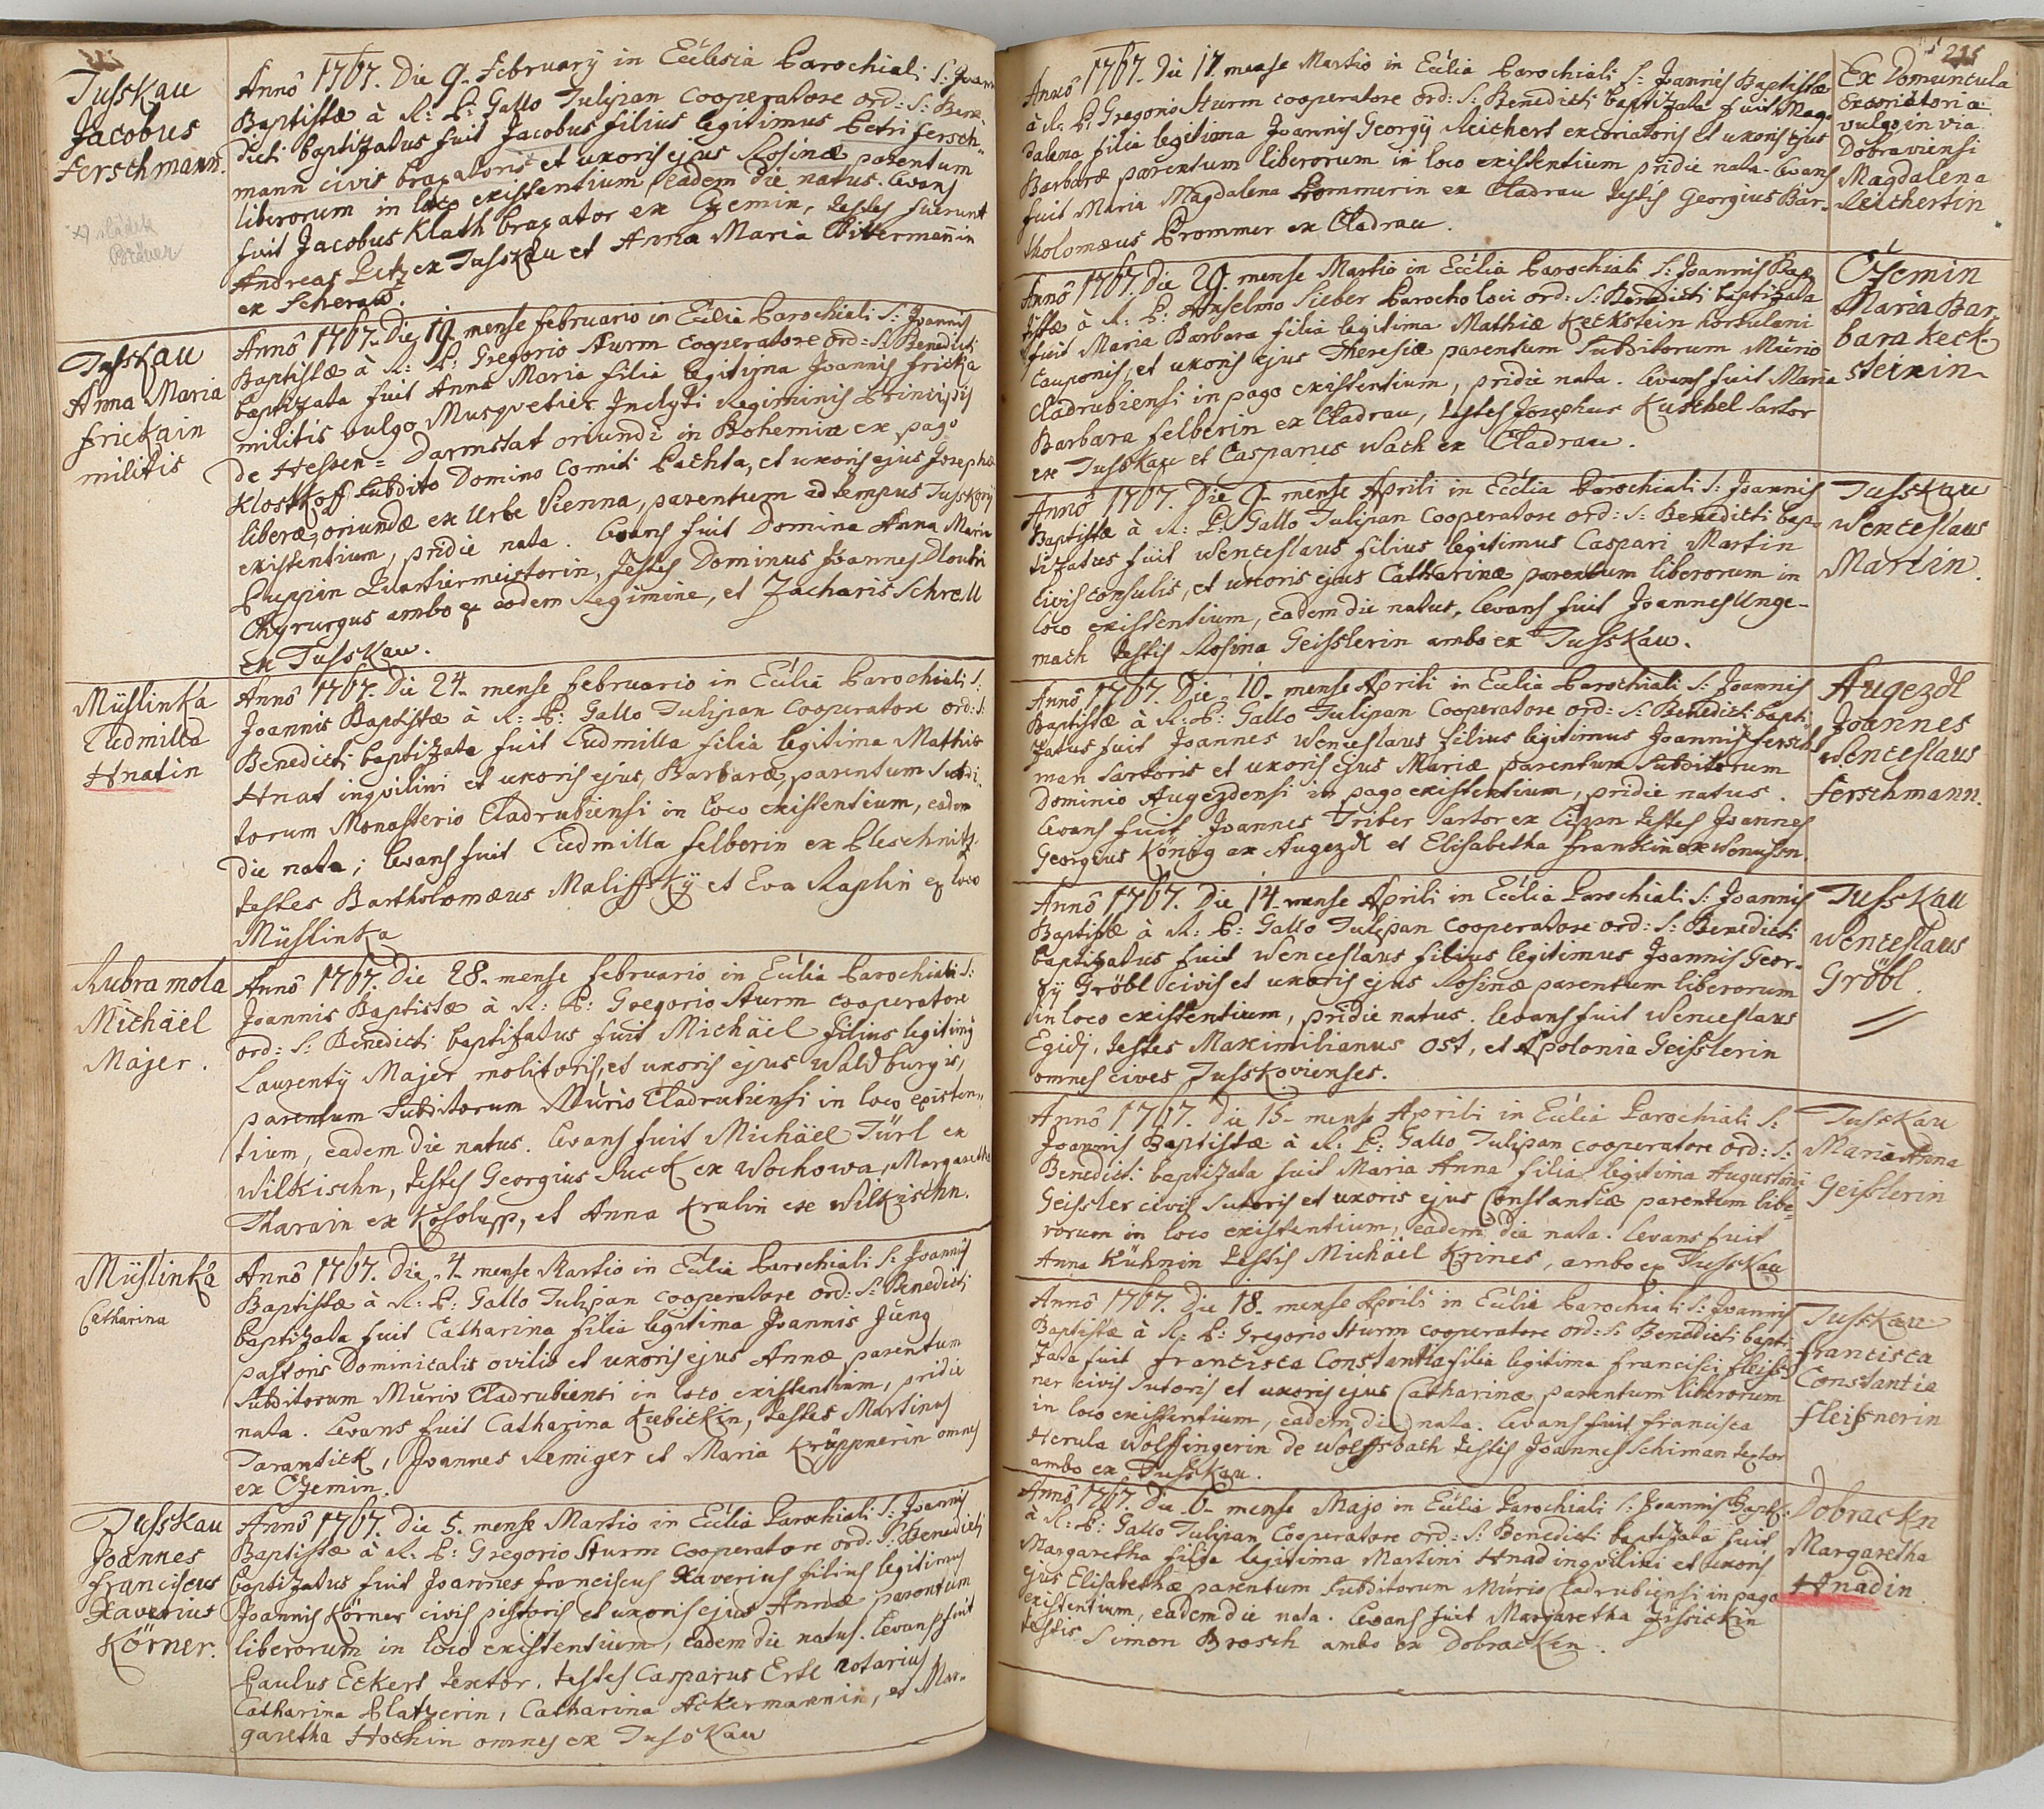 Tusskau
Jacobus
Ferschmann.
Anno 1767. Die 9. February in Ecclesia Parochiali S: Joannis
Baptistæ à R: P: Gallo Tulipan Cooperatore ord: S: Bene-
dicti baptizatus fuit Jacobus filius legitimus Petri Fersch-
mann civis braxatoris et uxoris ejus Rosinæ parentum
liberorum in loco existentium eadem die natus. Levans
fuit Jacobus Klath braxator ex Czemin, testes fuerunt
Andreas Petz ex Tusskau et Anna Maria
ex Scherau.
Tusskau
Anna Maria
Frickain
militis
Anno 1767. Die 19. mense Februario in Ecclia Parochiali S: Joannis
Baptistæ à R: P: Gregorio Sturm cooperatore ord: S: Benedicti
baptizata fuit Anna Maria filia legitima Joannis Fricka
militis vulgo Musqvetier Inclyti Regiminis Principis
de Hessen = Darmstat oriundi in Bohemia ex pago
Klostkoff subdito Domino Comiti Pachta, et uxoris ejus Josephæ
liberæ, oriundæ ex Urbe Vienna, parentum ad tempus Tuskovÿ
existentium, pridie nata. Levans fuit Domina Anna Maria
Puppin Quartiermeistorin, Testes Dominus Joannes Dlouhi
Chyrurgus ambo ex eodem Regimine, et Zacharis Schrell
ex Tusskau.
Müslinka
Ludmilla
Hnatin
Anno 1767. Die 24. mense Februario in Ecclia Parochiali S:
Joannis Baptistæ à R: P: Gallo Tulipan Cooperatore ord: S:
Benedicti baptizata fuit Ludmilla filia legitima Mathis
Hnat inqvilini et uxoris ejus, Barbaræ, parentum subdi-
torum Monasterio Cladrubiensi in loco existentium, eadem
die nata; Levans fuit Ludmilla Felberin ex Pleschnitz.
testes Bartholomæus Maliffskÿ et Eva Raplin ex loco
Müslinka
Rubra mola
Michäel
Majer.
Anno 1767. Die 28. mense Februario in Ecclia Parochiali S:
Joannis Baptistæ à R: P: Gregorio Sturm cooperatore
ord: S: Benedicti baptizatus fuit Michäel filius legitimg
Laurentÿ Majer molitoris, et uxoris ejus Waldburgis,
parentum Subditorum Murio Cladrubiensi in loco existen-
tium, eadem die natus. Levans fuit Michäel Türl ex
Wilkischn, testes Georgius Suck ex Wochowa, Margaretha
Tharain ex Kosolupp, et Anna Kralin exe Wilkischn.
Müslinka
Catharina
Anno 1767. Die 4. mense Martio in Ecclia Parochiali S: Joannis
Baptistæ à R: P: Gallo Tulipan cooperatore ord: S: Benedicti
baptizata fuit Catharina filia legitima Joannis Jung
pastoris Dominicalis ovilis et uxoris ejus Annæ parentum
Subditorum Murio Cladrubiensi in loco existentium, pridie
nata. Levans fuit Catharina Kubickin, testes Martinus
Tarantick, Joannes Remiger et Maria Krüppnerin omnes
ex Czemin.
Tusskau
Joannes
Franciscus
Xaverius
Körner.
Anno 1767. Die 5. mense Martio in Ecclia Parochiali S: Joannis
Baptistæ à R: P: Gregorio Sturm cooperatore ord: S: Benedicti
baptizatus fuit Joannes Franciscus Xaverius filius legitimus
Joannis Körner civis pistoris et uxoris ejus Annæ parentum
liberorum in loco existentium, eadem die natus. Levans fuit
Paulus Eckert textor. testes Casparus Ertl notarius,
Catharina Platzerin, Catharina Ackermannin, et Mar-
garetha Hochin omnes ex Tusskau
215
Anno 1767. Die 17. mense Martio in Ecclia Parochiali S: Joannis Baptistæ
à R: P: Gregorio Sturm cooperatore ord: S: Benedicti baptizata fuit Mag-
dalena filia legitima Joannis Georgÿ Reichert excoriatoris et uxoris ejus
Barbaræ parentum liberorum in loco existentium pridie nata. Levans
fuit Maria Magdalena Prommerin ex Cladrau testis Georgius Bar-
tholomæus Prommer ex Cladrau.
Ex Domuncula
Excoriatoria
vulgo in via
Dobraviensi
Magdalena
Reichertin
Anno 1767. Die 29. mense Martio in Ecclia Parochiali S: Joannis Bap-
tistæ à R: P: Anselmo Sieber Parocho loci ord: S: Benedicti baptizata
fuit Maria Barbara filia legitima Mathiæ Keckstein hortulani
Cauponis, et uxoris ejus Theresiæ parentum Subditorum Murio
Cladrubiensi in pago existentium, pridie nata. Levans fuit Maria
Barbara Felberin ex Cladrau, testes Josephus Kuschel Sartor
ex Tusskau et Casparus Wach ex Cladrau.
Czemin
Maria Bar-
bara Keck-
steinin
Anno 1767. Die 9. mense Aprili in Ecclia Parochiali S: Joannis
Baptistæ à R: P: Gallo Tulipan Cooperatore ord: S: Benedicti bap-
tizatus fuit Wenceslaus filius legitimus Caspari Martin
Civis consulis, et uxoris ejus Catharinæ parentum liberorum in
loco existentium, eadem die natus, Levans fuit Joannes Unge-
mach testis Rosina Geisslerin ambo ex Tusskau.
Tusskau
Wenceslaus
Martin.
Anno 1767. Die 10. mense Aprili in Ecclia Parochiali S: Joannis
Baptistæ à R: P: Gallo Tulipan Cooperatore ord: S: Benedicti bapti-
zatus fuit Joannes Wenceslaus filius legitimus Joannis Fersch-
man Sartoris et uxoris ejus Mariæ parentum Subditorum
Dominio Augezdensi in pago existentium, pridie natus.
Levans fuit Joannes Triber Sartor ex testes Joannes
Georgius König ex Augezdl et Elisabetha Frankin ex
Augezdl
Joannes
Wenceslaus
Ferschmann.
Anno 1767. Die 14. mense Aprili in Ecclia Parochiali S: Joannis
Baptistæ à R: P: Gallo Tulipan Cooperatore ord: S: Benedicti
baptizatus fuit Wenceslaus filius legitimus Joannis Geor-
gÿ Gröbl civis et uxoris ejus Rosinæ parentum liberorum
in loco existentium, pridie natus. Levans fuit Wenceslaus
Egidj, testes Maximilianus Ost, et Apolonia Geisslerin
omnes cives Tusskovienses.
Tusskau
Wenceslaus
Gröbl.
Anno 1767. Die 15. mense Aprili in Ecclia Parochiali S:
Joannis Baptistæ à R: P: Gallo Tulipan cooperatore ord: S:
Benedicti baptizata fuit Maria Anna filia legitima Augustini
Geissler civis Sutoris et uxoris ejus Constantiæ parentum libe-
rorum in loco existentium, eadem die nata. Levans fuit
Anna Kühnin testis Michäel Krines, ambo ex Tusskau
Tusskau
Maria Anna
Geisslerin
Anno 1767. Die 18. mense Aprili in Ecclia Parochiali S: Joannis
Baptistæ à R: P: Gregorio Sturm cooperatore ord: S: Benedicti bapti-
zata fuit Francisca Constantia filia legitima Francisci Fleiss-
ner civis Sutoris et uxoris ejus Catharinæ parentum liberorum
in loco existentium, eadem die nata. Levans fuit Francisca
Herula Wolffingerin de Wolffsbach testis Joannes Schiman textor
ambo ex Tusskau.
Tusskau
Francisca
Constantia
Fleissnerin
Anno 1767. Die 6. mense Majo in Ecclia Parochiali S: Joannis Bapt:
à R: P: Gallo Tulipan Cooperatore ord: S: Benedicti baptizata fuit
Margaretha filia legitima Martini Hnad inqvilini et uxoris
ejus Elisabethæ parentum Subditorum Murio Cladrubiensi in pago
existentium, eadem die nata. Levans fuit Margaretha
testis Simon Brosch ambo ex Dobracken.
Dobrackn
Margaretha
Hnadin.